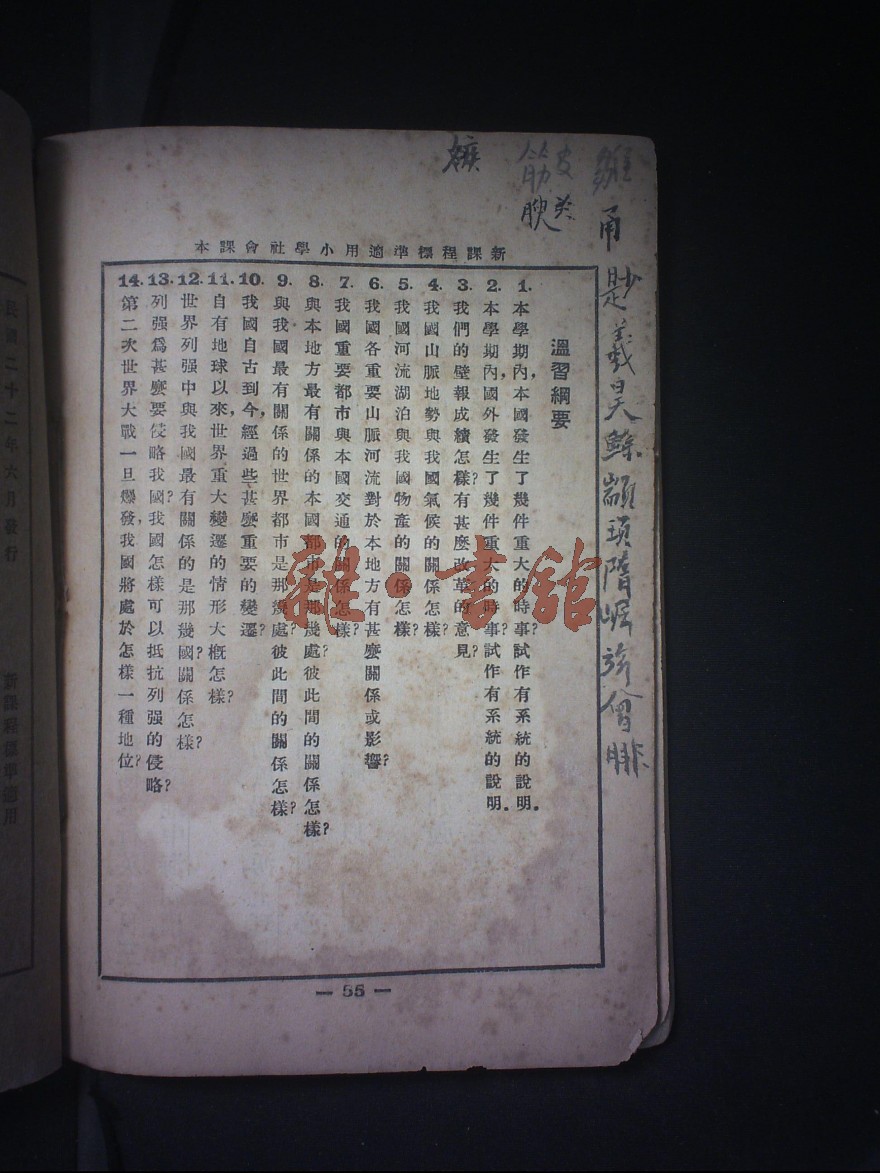 新課程標準適用小學社會課本
溫習綱要
1. 本學期內,本國發生了幾件重大的時事?試作有系統的說明.
2. 本學期內,國外發生了幾件重大的時事?試作有系統的說明.
3. 我們的壁報成績怎樣?有甚麼改革的意見?
4. 我國山脈地勢與我國氣候的關係怎樣?
5. 我國河流湖泊與我國物產的關係怎樣?
6. 我國各重要山脈河流對於本地方有甚麼關係或影響?
7. 我國重要都市與本國交通的關係怎樣?
8. 與本地方最有關係的本國都市是那幾處?彼此間的關係怎樣?
9. 與我國最有關係的世界都市是那幾處?彼此間的關係怎樣?
10. 我國自古到今,經過些甚麼重要的變遷?
11. 自有地球以來,世界重大變遷的情形大概怎樣?
12. 世界列强中與我國最有關係的是那幾國?關係怎樣?
13. 列强爲甚麼要侵略我國?我國怎樣可以抵抗列强的侵略?
14. 第二次世界大戰一旦爆發,我國將處於怎樣一種地位?
— 55 —
雜·書館
民國二十二年六月發行
新課程標準適用